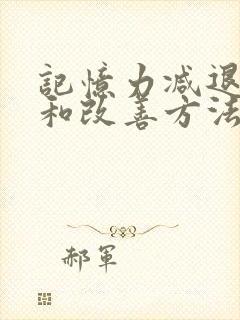 記憶力减退
和改善方法
郝軍